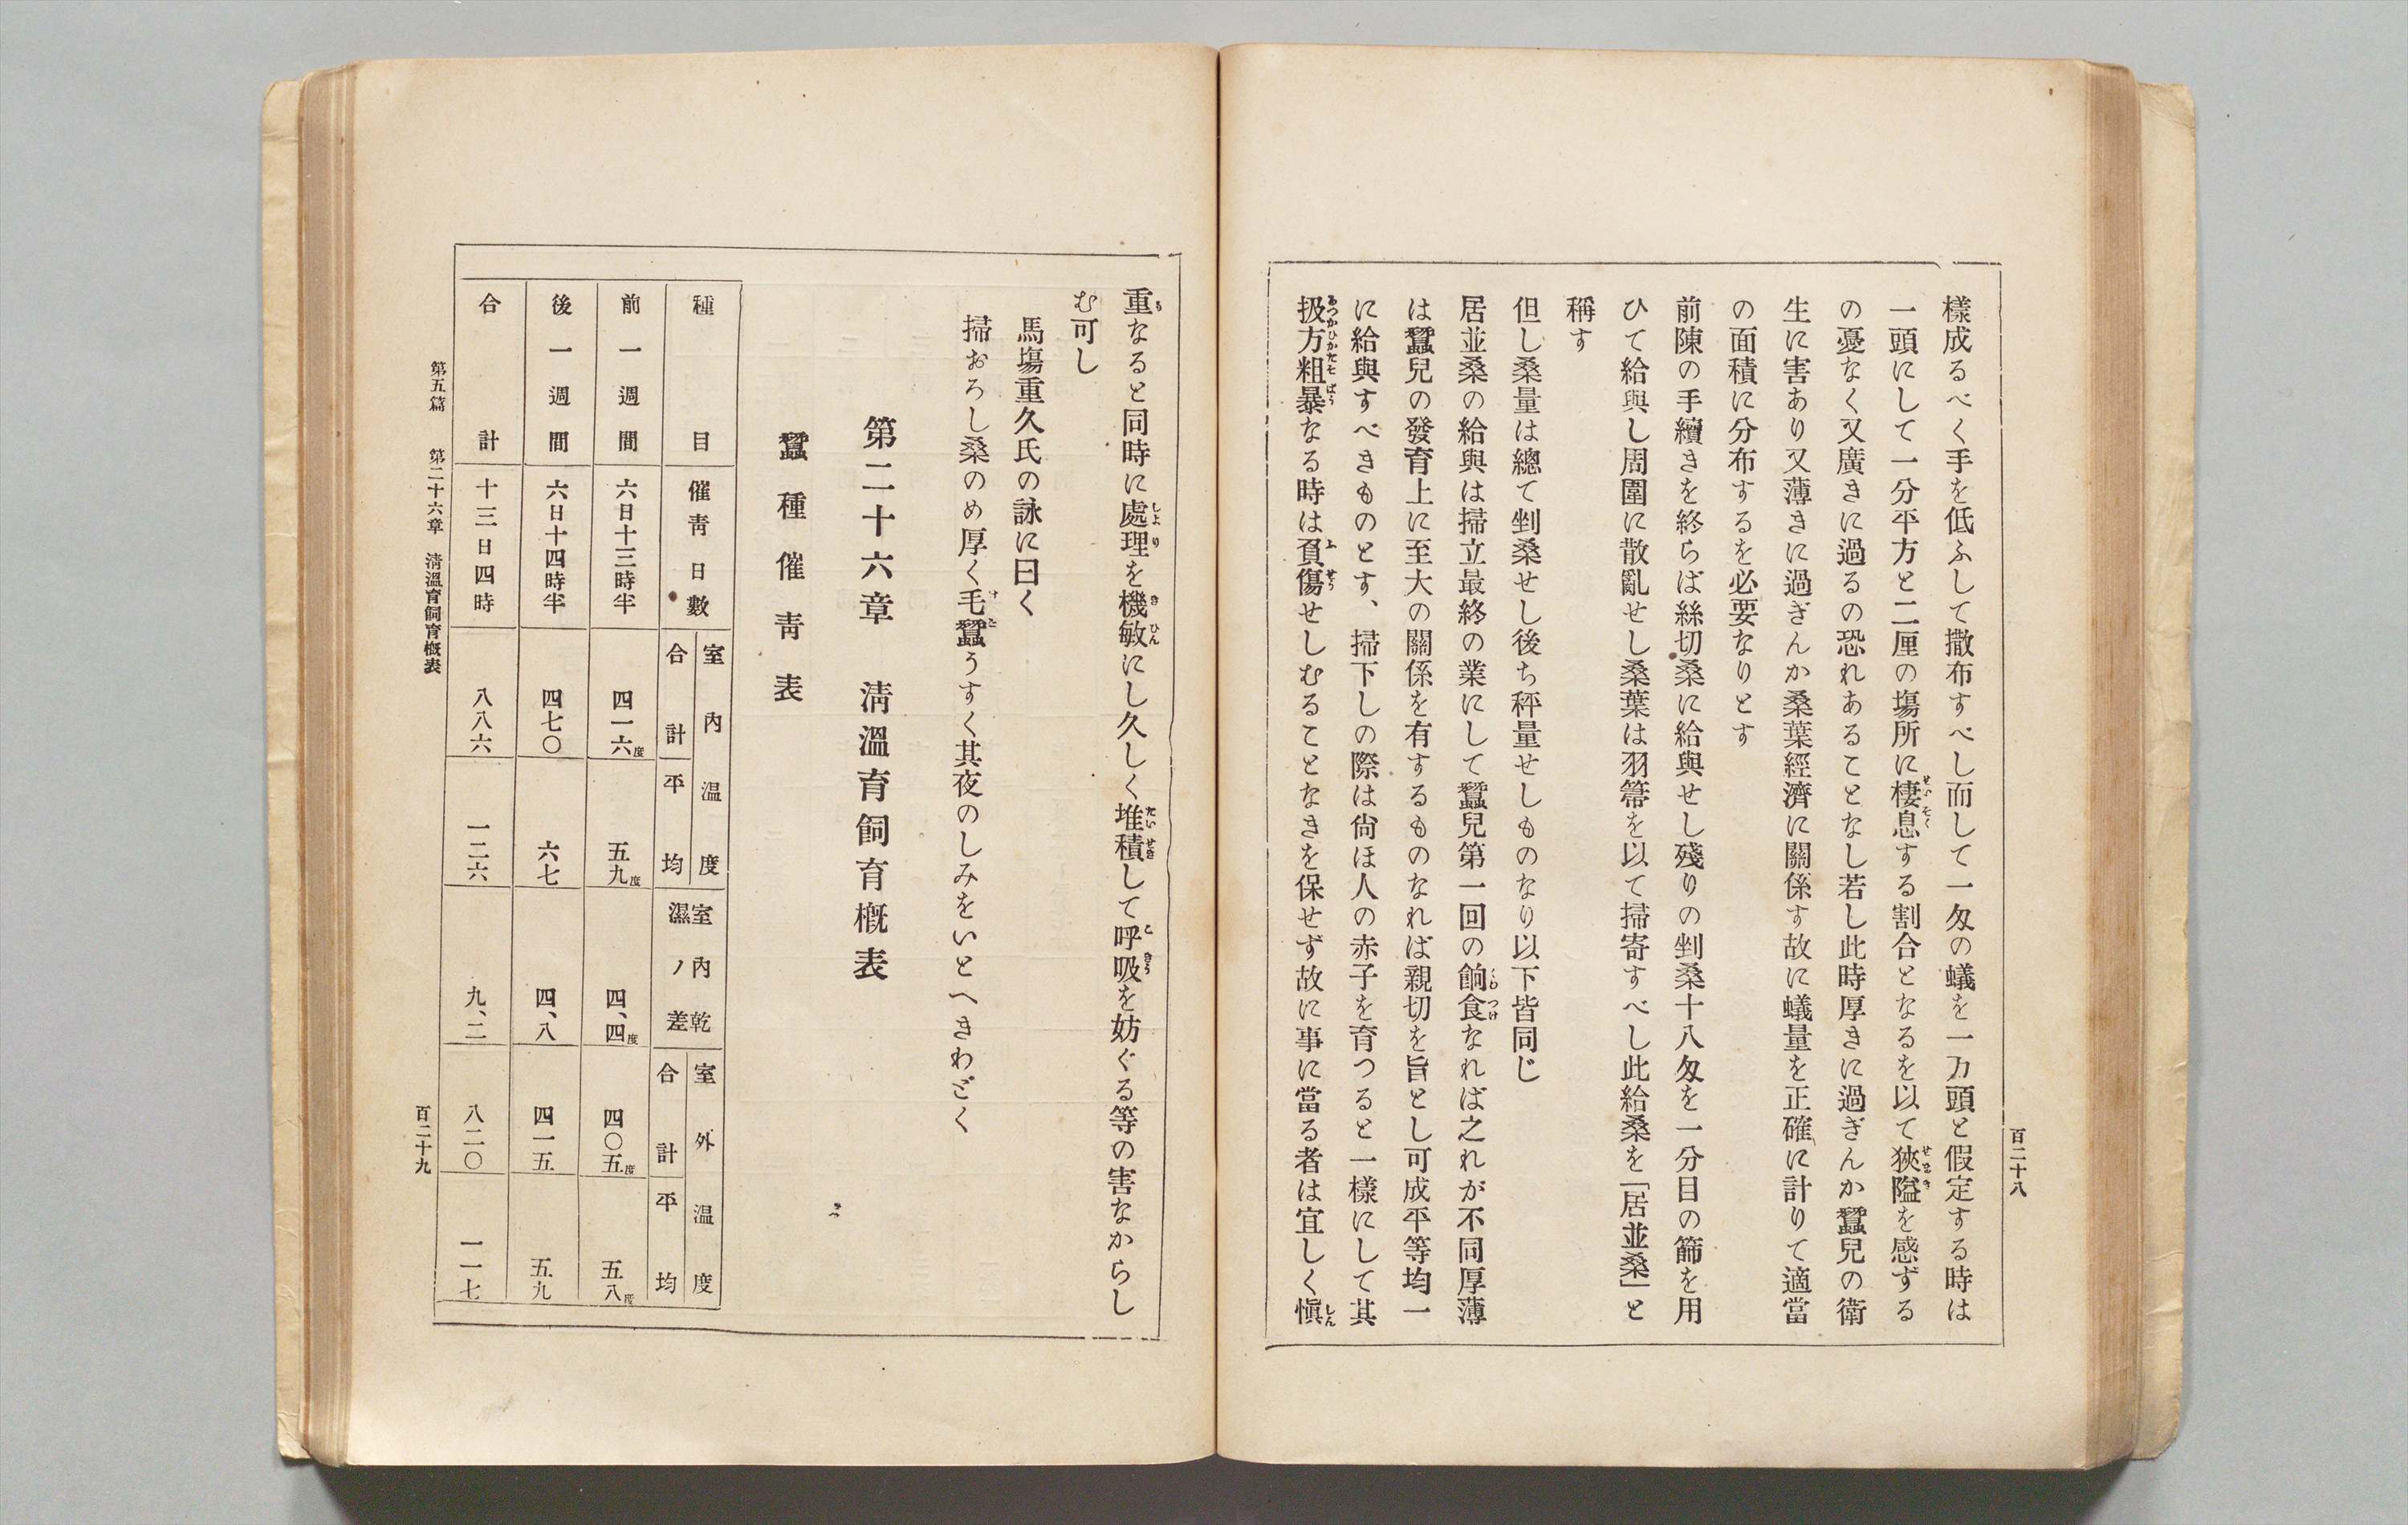 百二十八
樣成るべく手を低ふして撒布すべし而して一匁の蟻を一万頭と假定する時は
一頭にして一分平方と二厘の塲所に棲息する割合となるを以て狹隘を感ずる
の憂なく又廣きに過るの恐れあることなし若し此時厚きに過ぎんか蠶兒の衛
生に害あり又薄きに過ぎんか桑葉經濟に關係す故に蟻量を正確に計りて適當
の面積に分布するを必要なりとす
前陳の手續きを終らば絲切桑に給與せし殘りの剉桑十八匁を一分目の篩を用
ひて給與し周圍に散亂せし桑葉は羽箒を以て掃寄すべし此給桑を「居並桑」と
稱す
但し桑量は總て剉桑せし後ち秤量せしものなり以下皆同じ
居並桑の給與は掃立最終の業にして蠶兒第一回の餉食なれば之れが不同厚薄
は蠶兒の發育上に至大の關係を有するものなれば親切を旨とし可成平等均一
に給與すべきものとす、掃下しの際は尙ほ人の赤子を育つると一樣にして其
扱方粗暴なる時は負傷せしむることなきを保せず故に事に當る者は宜しく愼
重なると同時に處理を機敏にし久しく堆積して呼吸を妨ぐる等の害なからし
む可し
馬塲重久氏の詠に曰く
掃おろし桑のめ厚く毛蠶うすく其夜のしみをいとへきわざく
第二十六章　淸溫育飼育槪表
蠶種催靑表
種目　催靑日數　室內溫度　合計　平均　室內乾濕ノ差　室外溫度　合計　平均
前一週間　六日十三時半　四一六度　五九度　四、四度　四〇五度　五八度
後一週間　六日十四時半　四七〇　六七　四、八　四一五　五九
合計　十三日四時　八八六　一二六　九、二　八二〇　一一七
第五篇　第二十六章　淸溫育飼育槪表
百二十九